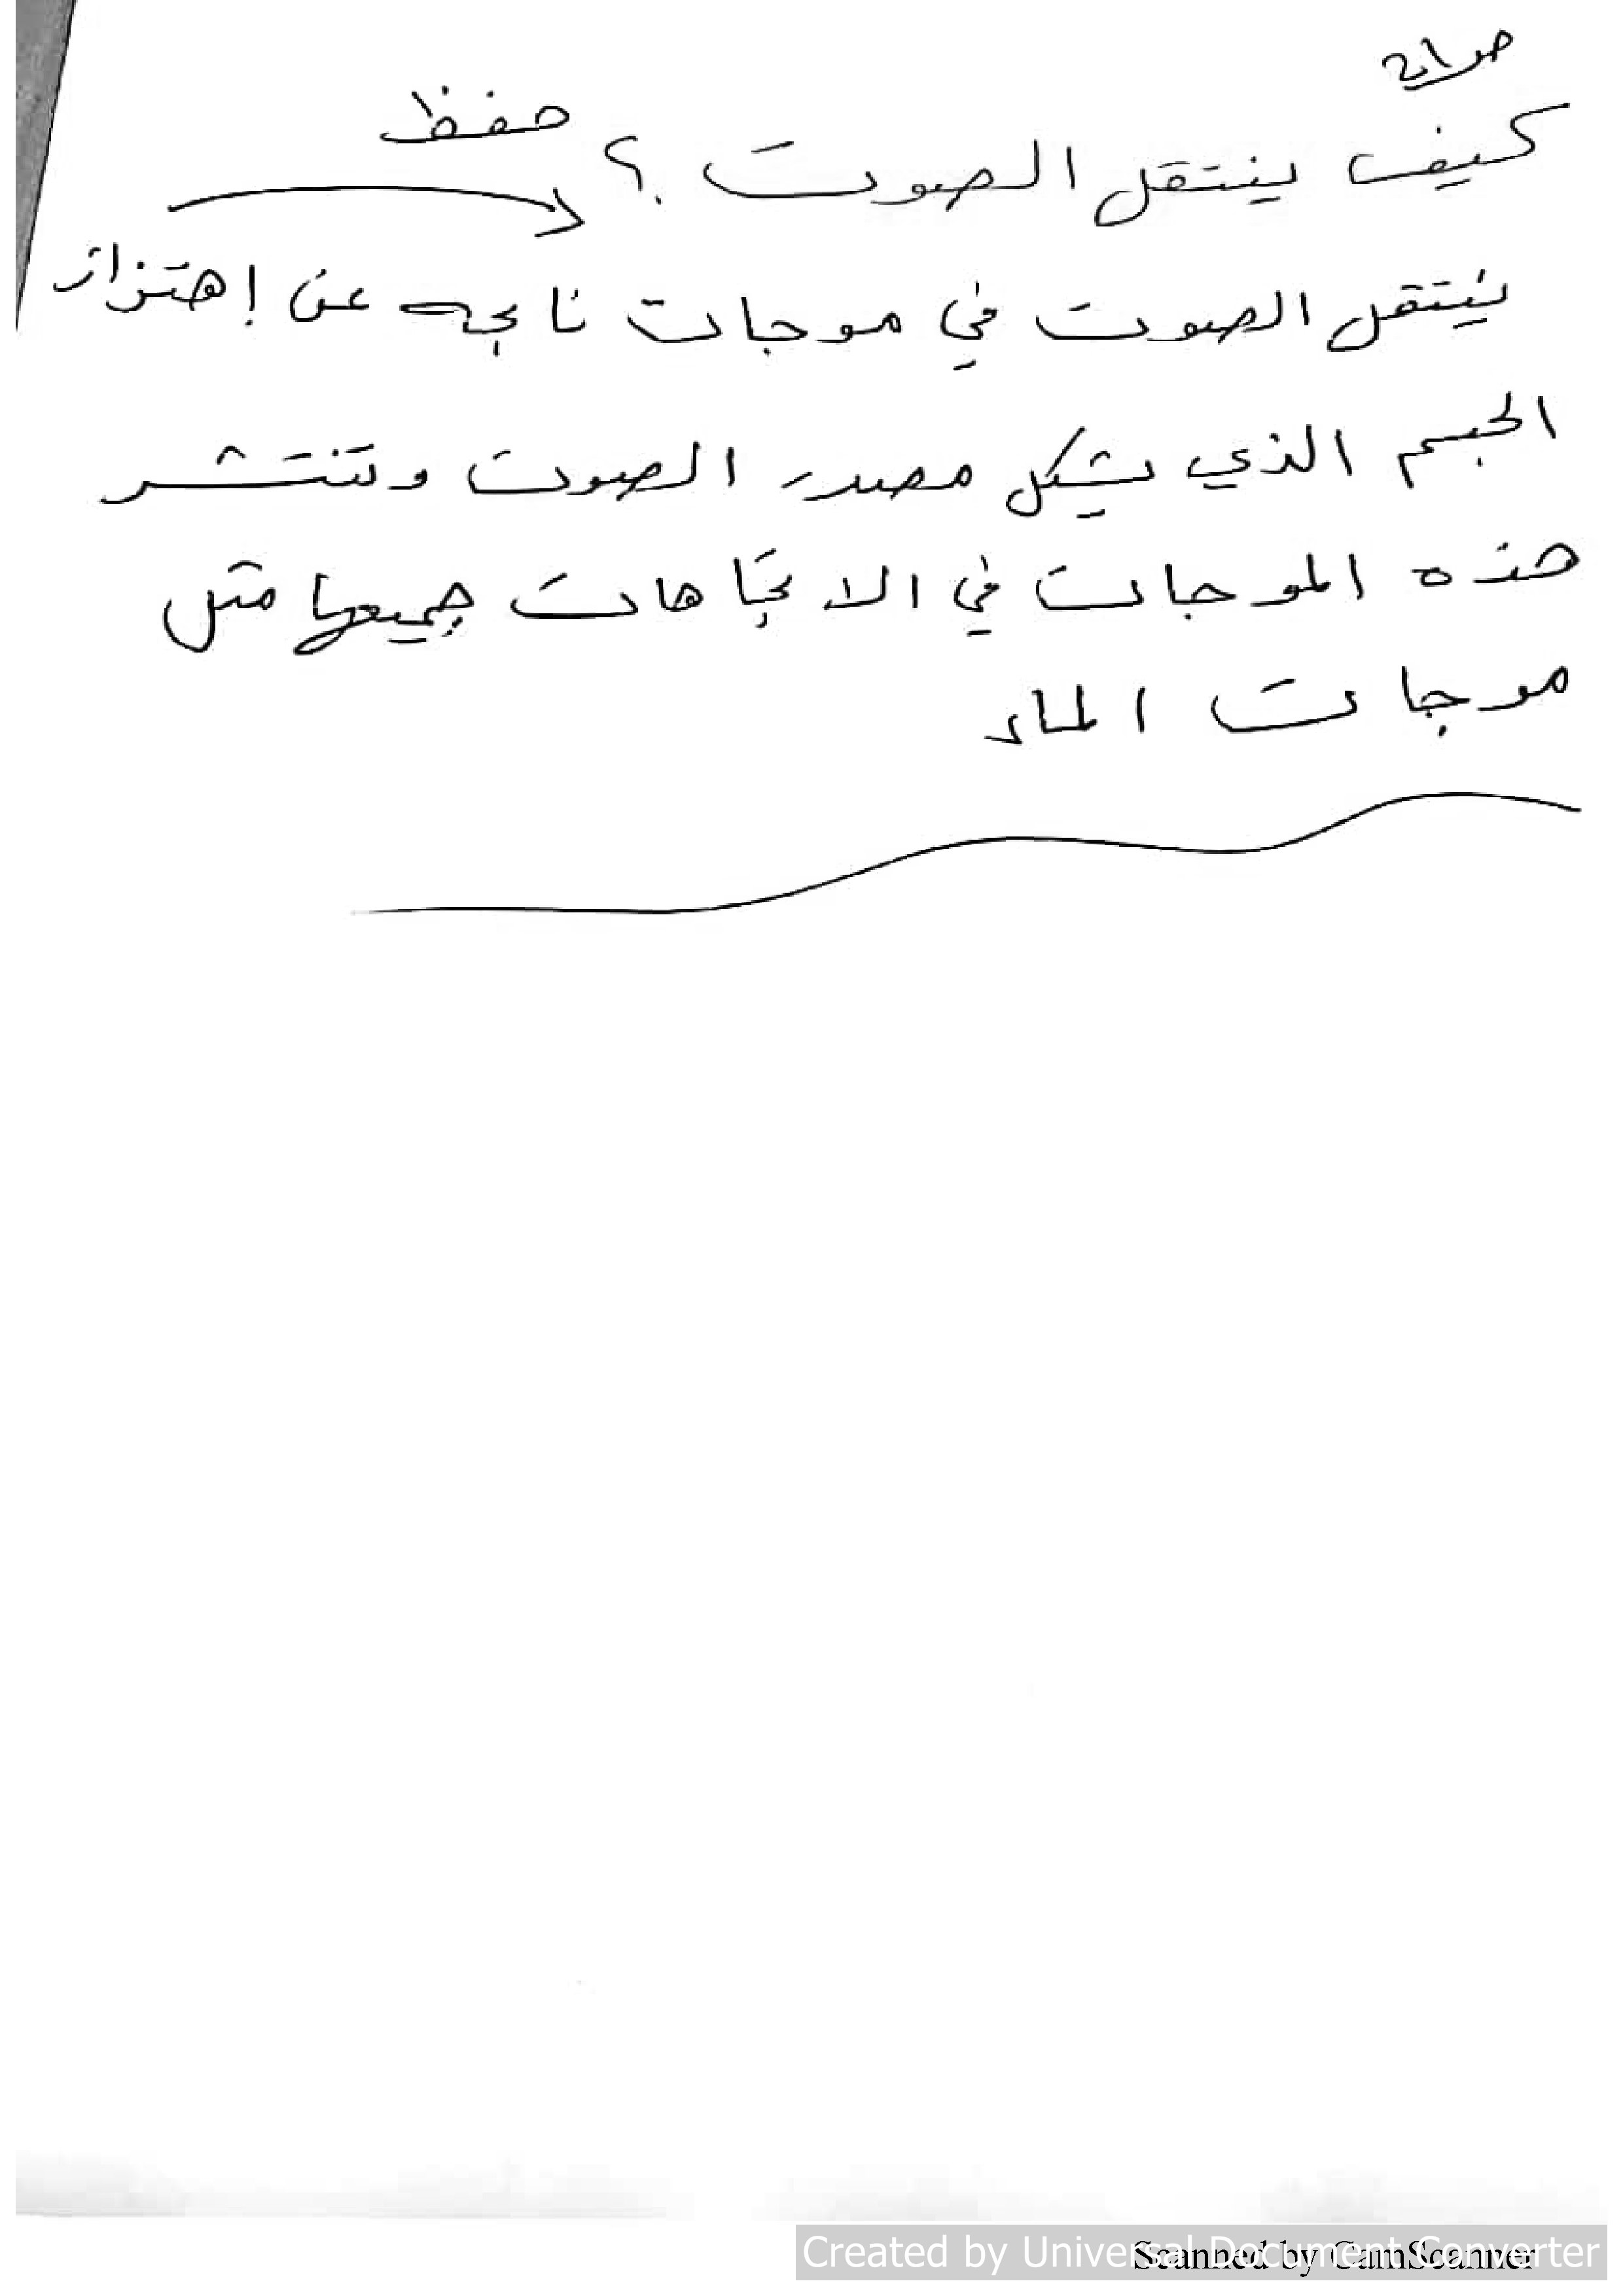 كيف ينتقل الصوت ؟ حفظ
ينتقل الصوت في موجات ناتجه عن إهتزاز
الجسم الذي يشكل مصدر الصوت وتنتشر
هذه الموجات في الاتجاهات جميعها مثل
موجات الماء
Created by Universal Document Converter
Scanned by CamScanner